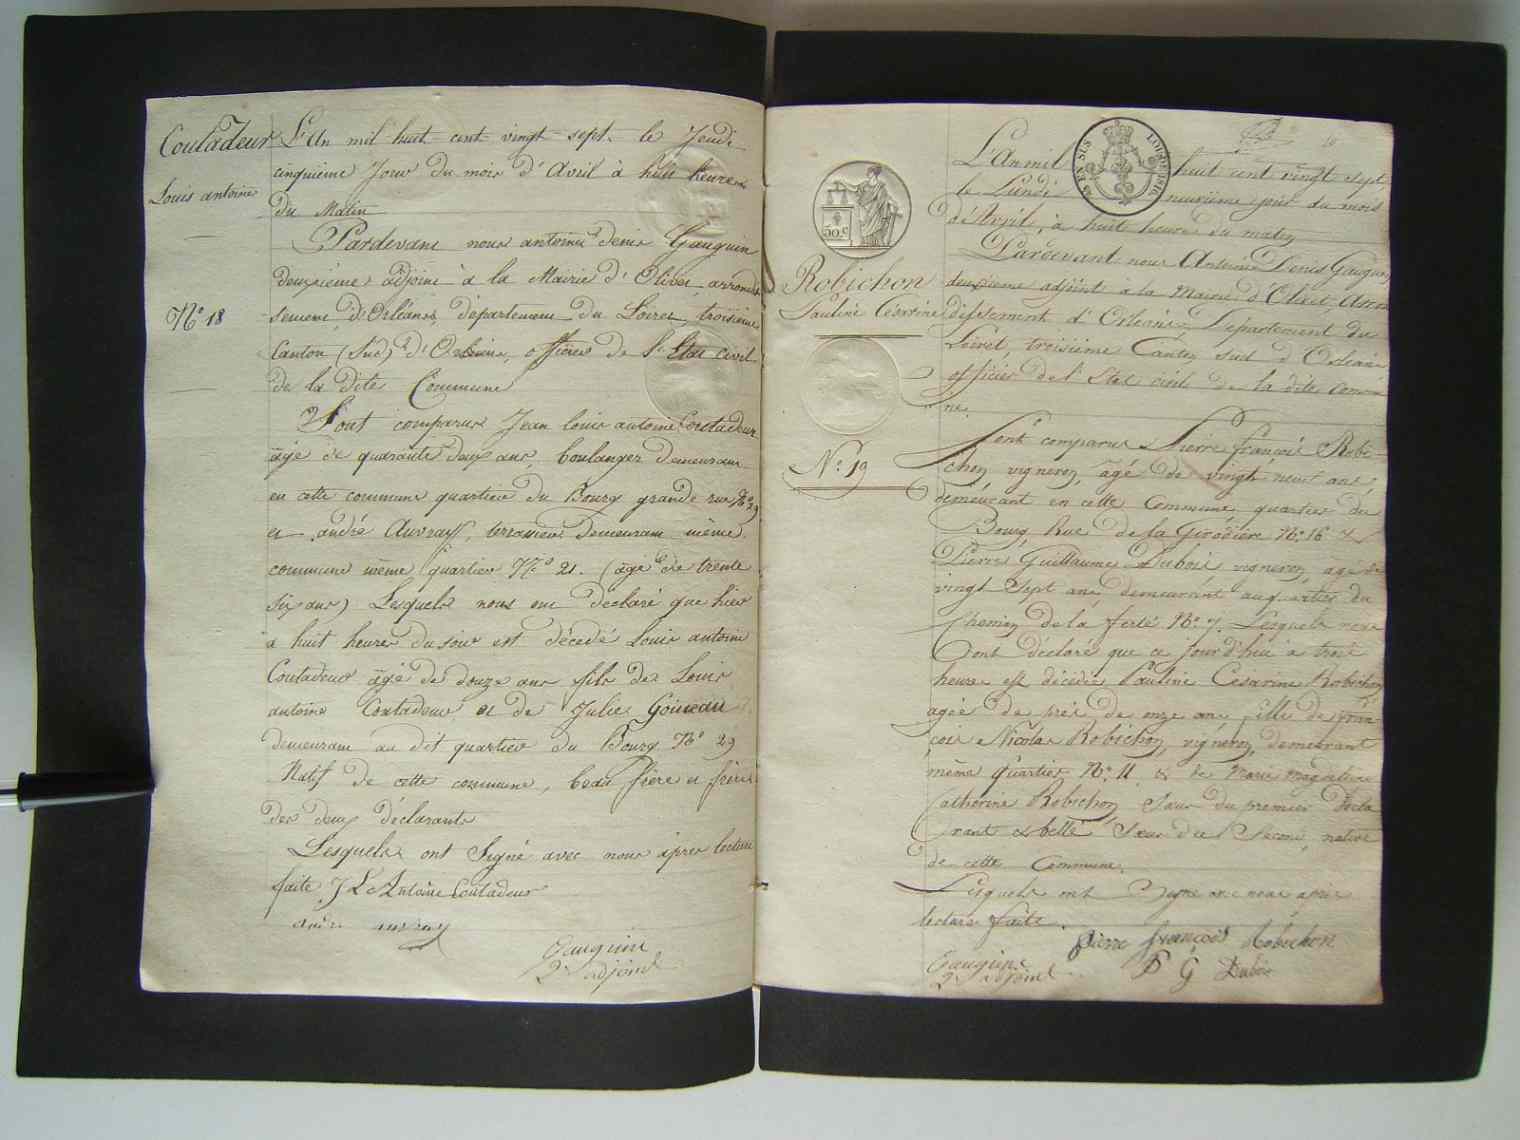 Coutadeur
Louis antoine
N.o 18
L'An mil huit cent vingt sept. le Jeudi
cinquième Jour du mois d'Avril à huit heures
du Matin
Pardevant nous antoine denis Gauguin
deuxième adjoint à la Mairie d'Olivet, arrondis
sement d'Orléans, département du Loiret, troisième
Canton (Sud) d'Orléans, officier de l'Etat civil
de la dite Commune
Sont comparus Jean louis antoine Coutadeur
âgé de quarante deux ans, boulanger demeurant
en cette commune quartier du Bourg grande rue N.o 29
et andré Auvray, terrassier demeurant même
commune même quartier N.o 21. (âgé de trente
six ans) Lesquels nous ont déclaré que hier
à huit heures du soir est décédé Louis antoine
Coutadeur âgé de douze ans fils de Louis
antoine Coutadeur et de Julie Goineau
demeurant au dit quartier du Bourg N.o 29
Natif de cette commune, beau frère et frère
des deux déclarants
Lesquels ont Signé avec nous après lecture
faite J L Antoine Coutadeur
andre auvray
Gauguin
2e adjoint
50.c
Robichon
Pauline Césarine
N.o 19
EN SUS
L'An mil huit cent vingt sept,
le Lundi neuvième jour du mois
d'Avril, à huit heures du matin
Pardevant nous Antoine Denis Gauguin,
deuxième adjoint à la Mairie d'Olivet, Arron
dissement d'Orléans, Département du
Loiret, troisième Canton sud d'Orléans
officier de l'Etat civil de la dite commu
ne.
Sont comparus Pierre françois Robi-
chon vigneron, âgé de vingt neuf ans,
demeurant en cette Commune, quartier du
Bourg Rue de la Girodière N.o 16 &
Pierre Guillaume Dubois vigneron âgé de
vingt Sept ans, demeurant au quartier du
Chemin de la ferté N.o 7. Lesquels nous
ont déclaré que ce jour d'hui à trois
heures est décédée Pauline Césarine Robichon
agée de près de onze ans, fille de fran
çois Nicolas Robichon, vigneron, demeurant
même quartier N.o 11 & de Marie magdeleine
Catherine Robichon Sœur du premier décla
rant & belle Sœur du Second, native
de cette Commune.
Lesquels ont Signé avec nous après
lecture faite.
pierre françois Robichon
Gauguin P G Dubois
2e adjoint